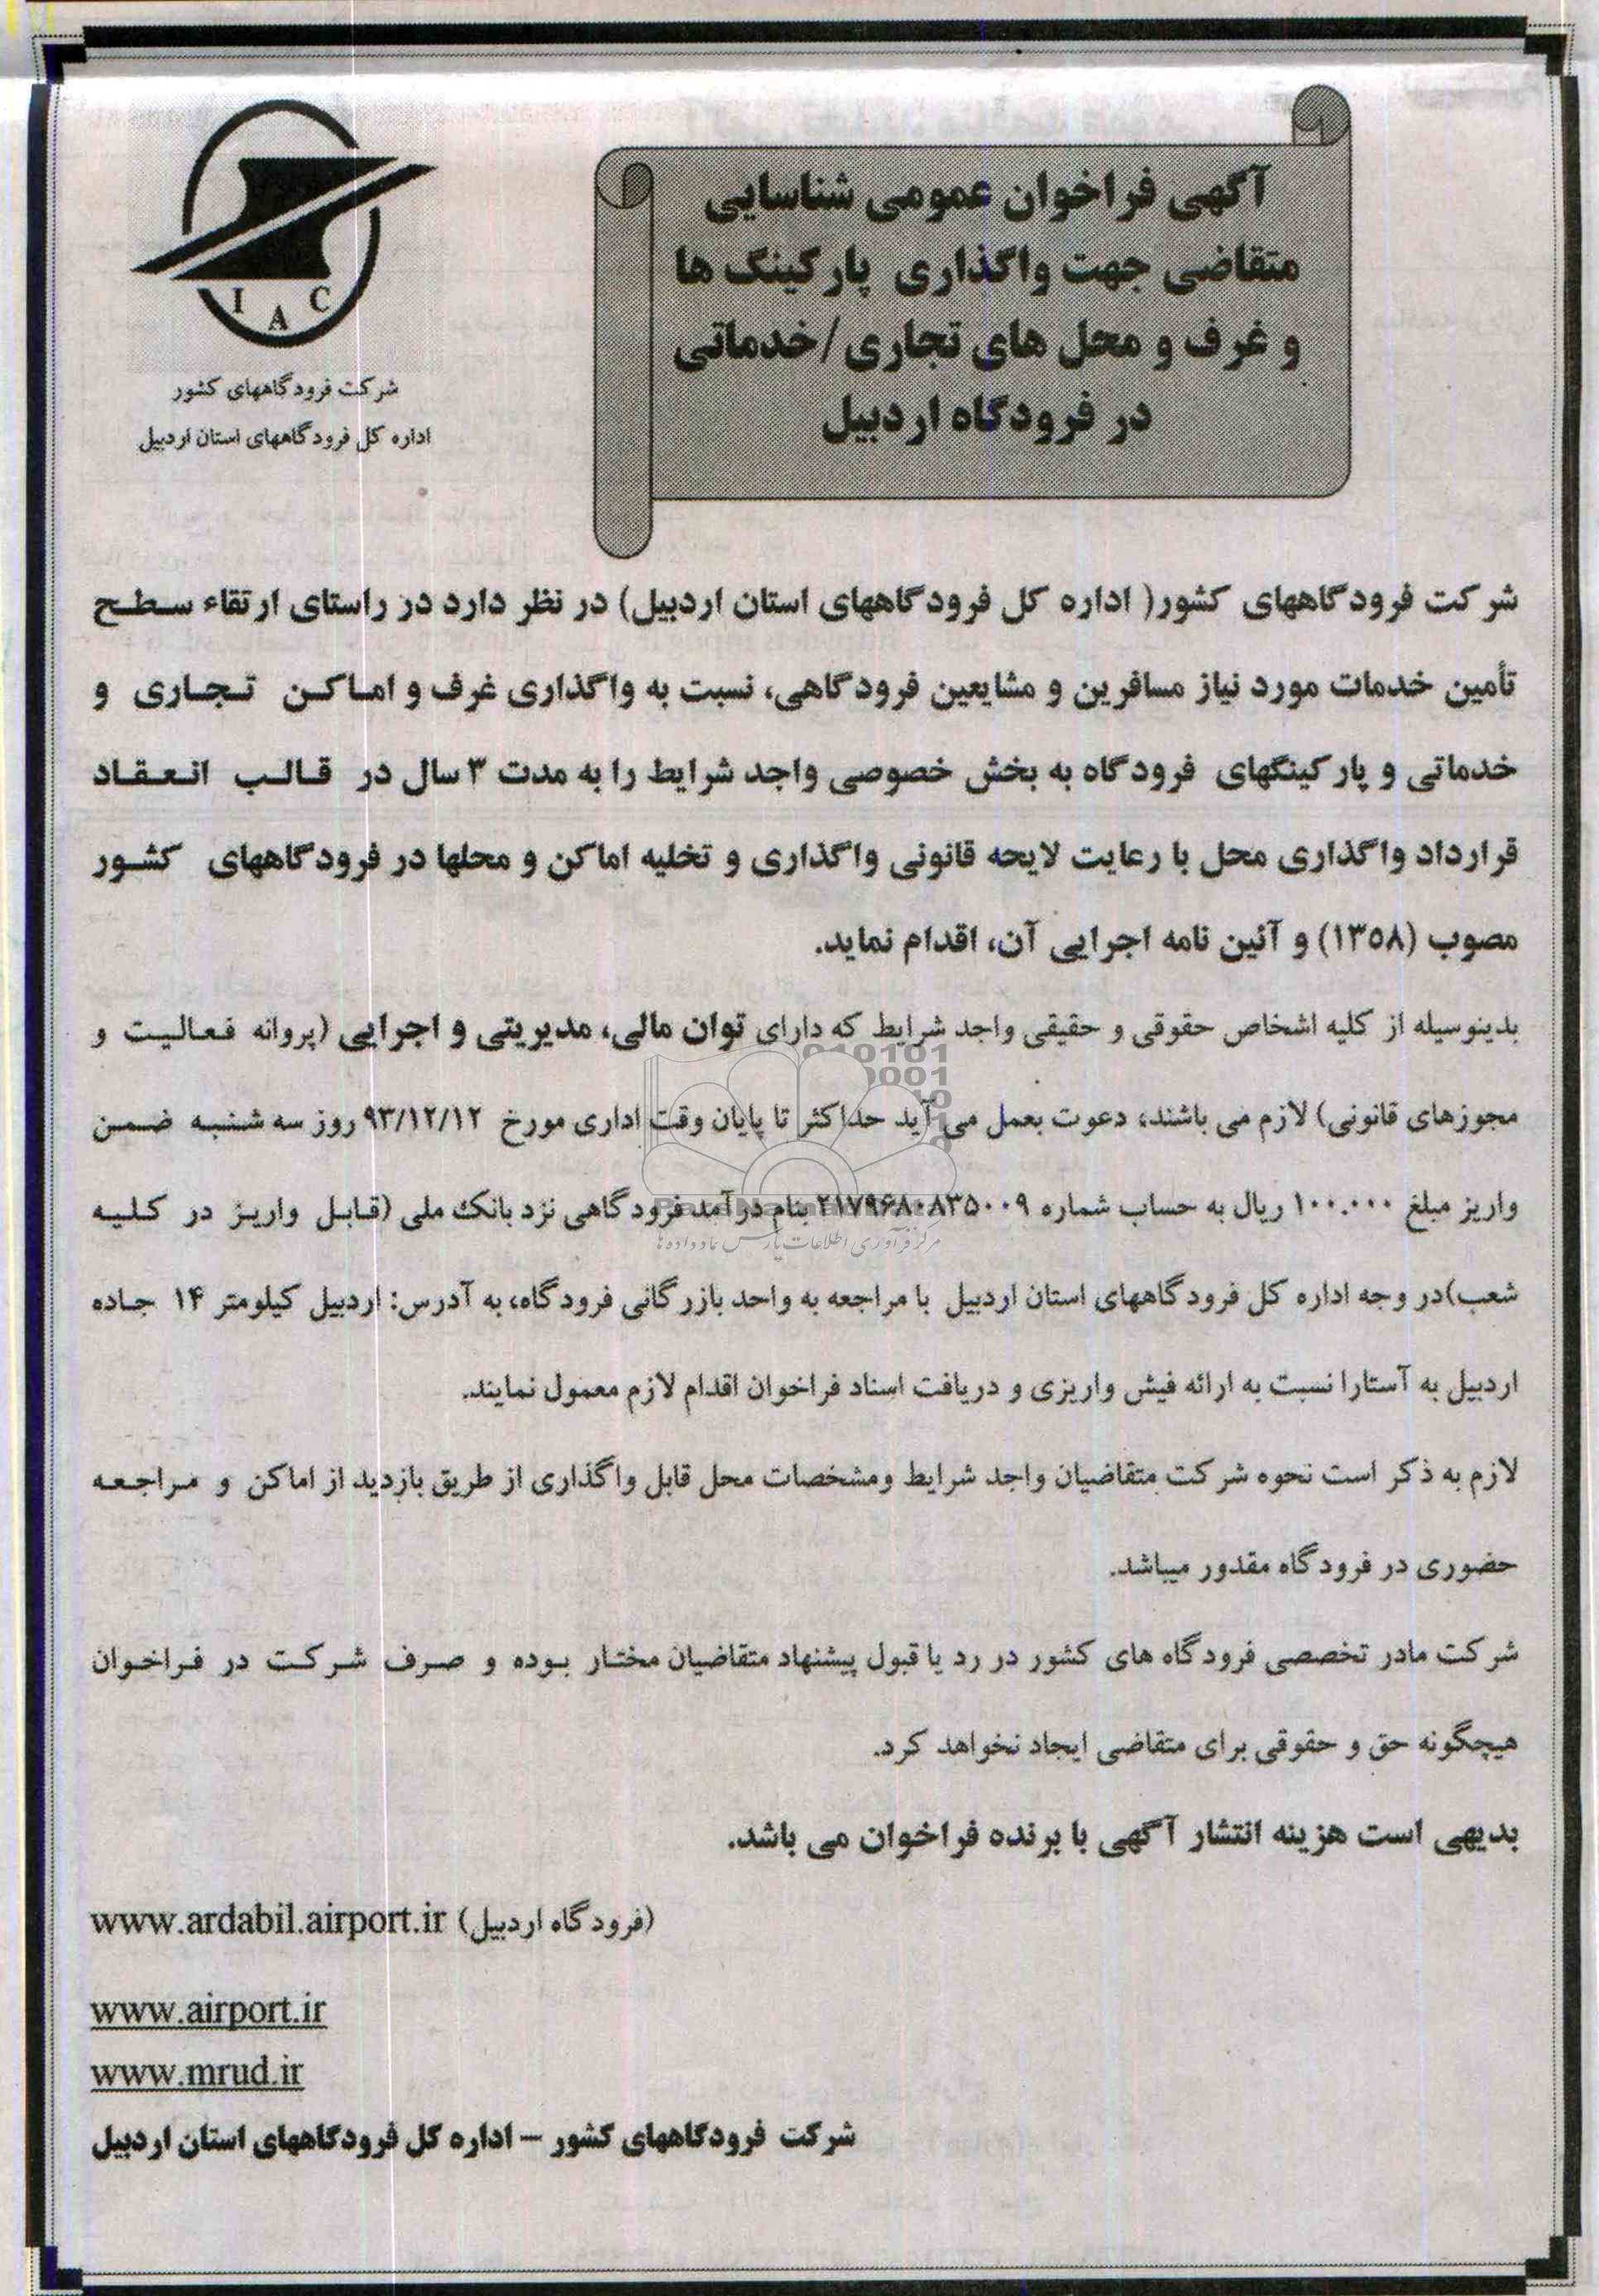 آگهی فراخوان عمومی شناسایی
متقاضی جهت واگذاری پارکینگ ها
و غرف و محل های تجاری/خدماتی
در فرودگاه اردبیل
I A C
شرکت فرودگاههای کشور
اداره کل فرودگاههای استان اردبیل
شرکت فرودگاههای کشور( اداره کل فرودگاههای استان اردبیل) در نظر دارد در راستای ارتقاء سطح
تأمین خدمات مورد نیاز مسافرین و مشایعین فرودگاهی، نسبت به واگذاری غرف و اماکن تجاری و
خدماتی و پارکینگهای فرودگاه به بخش خصوصی واجد شرایط را به مدت ۳ سال در قالب انعقاد
قرارداد واگذاری محل با رعایت لایحه قانونی واگذاری و تخلیه اماکن و محلها در فرودگاههای کشور
مصوب (۱۳۵۸) و آئین نامه اجرایی آن، اقدام نماید.
بدینوسیله از کلیه اشخاص حقوقی و حقیقی واجد شرایط که دارای توان مالی، مدیریتی و اجرایی (پروانه فعالیت و
مجوزهای قانونی) لازم می باشند، دعوت بعمل می آید حداکثر تا پایان وقت اداری مورخ ۹۳/۱۲/۱۲ روز سه شنبه ضمن
واریز مبلغ ۱۰۰.۰۰۰ ریال به حساب شماره ۲۱۷۹۶۸۰۸۳۵۰۰۹ بنام درآمد فرودگاهی نزد بانک ملی (قابل واریز در کلیه
شعب)در وجه اداره کل فرودگاههای استان اردبیل با مراجعه به واحد بازرگانی فرودگاه، به آدرس: اردبیل کیلومتر ۱۴ جاده
اردبیل به آستارا نسبت به ارائه فیش واریزی و دریافت اسناد فراخوان اقدام لازم معمول نمایند.
لازم به ذکر است نحوه شرکت متقاضیان واجد شرایط ومشخصات محل قابل واگذاری از طریق بازدید از اماکن و مراجعه
حضوری در فرودگاه مقدور میباشد.
شرکت مادر تخصصی فرودگاه های کشور در رد یا قبول پیشنهاد متقاضیان مختار بوده و صرف شرکت در فراخوان
هیچگونه حق و حقوقی برای متقاضی ایجاد نخواهد کرد.
بدیهی است هزینه انتشار آگهی با برنده فراخوان می باشد.
www.ardabil.airport.ir (فرودگاه اردبیل)
www.airport.ir
www.mrud.ir
شرکت فرودگاههای کشور – اداره کل فرودگاههای استان اردبیل